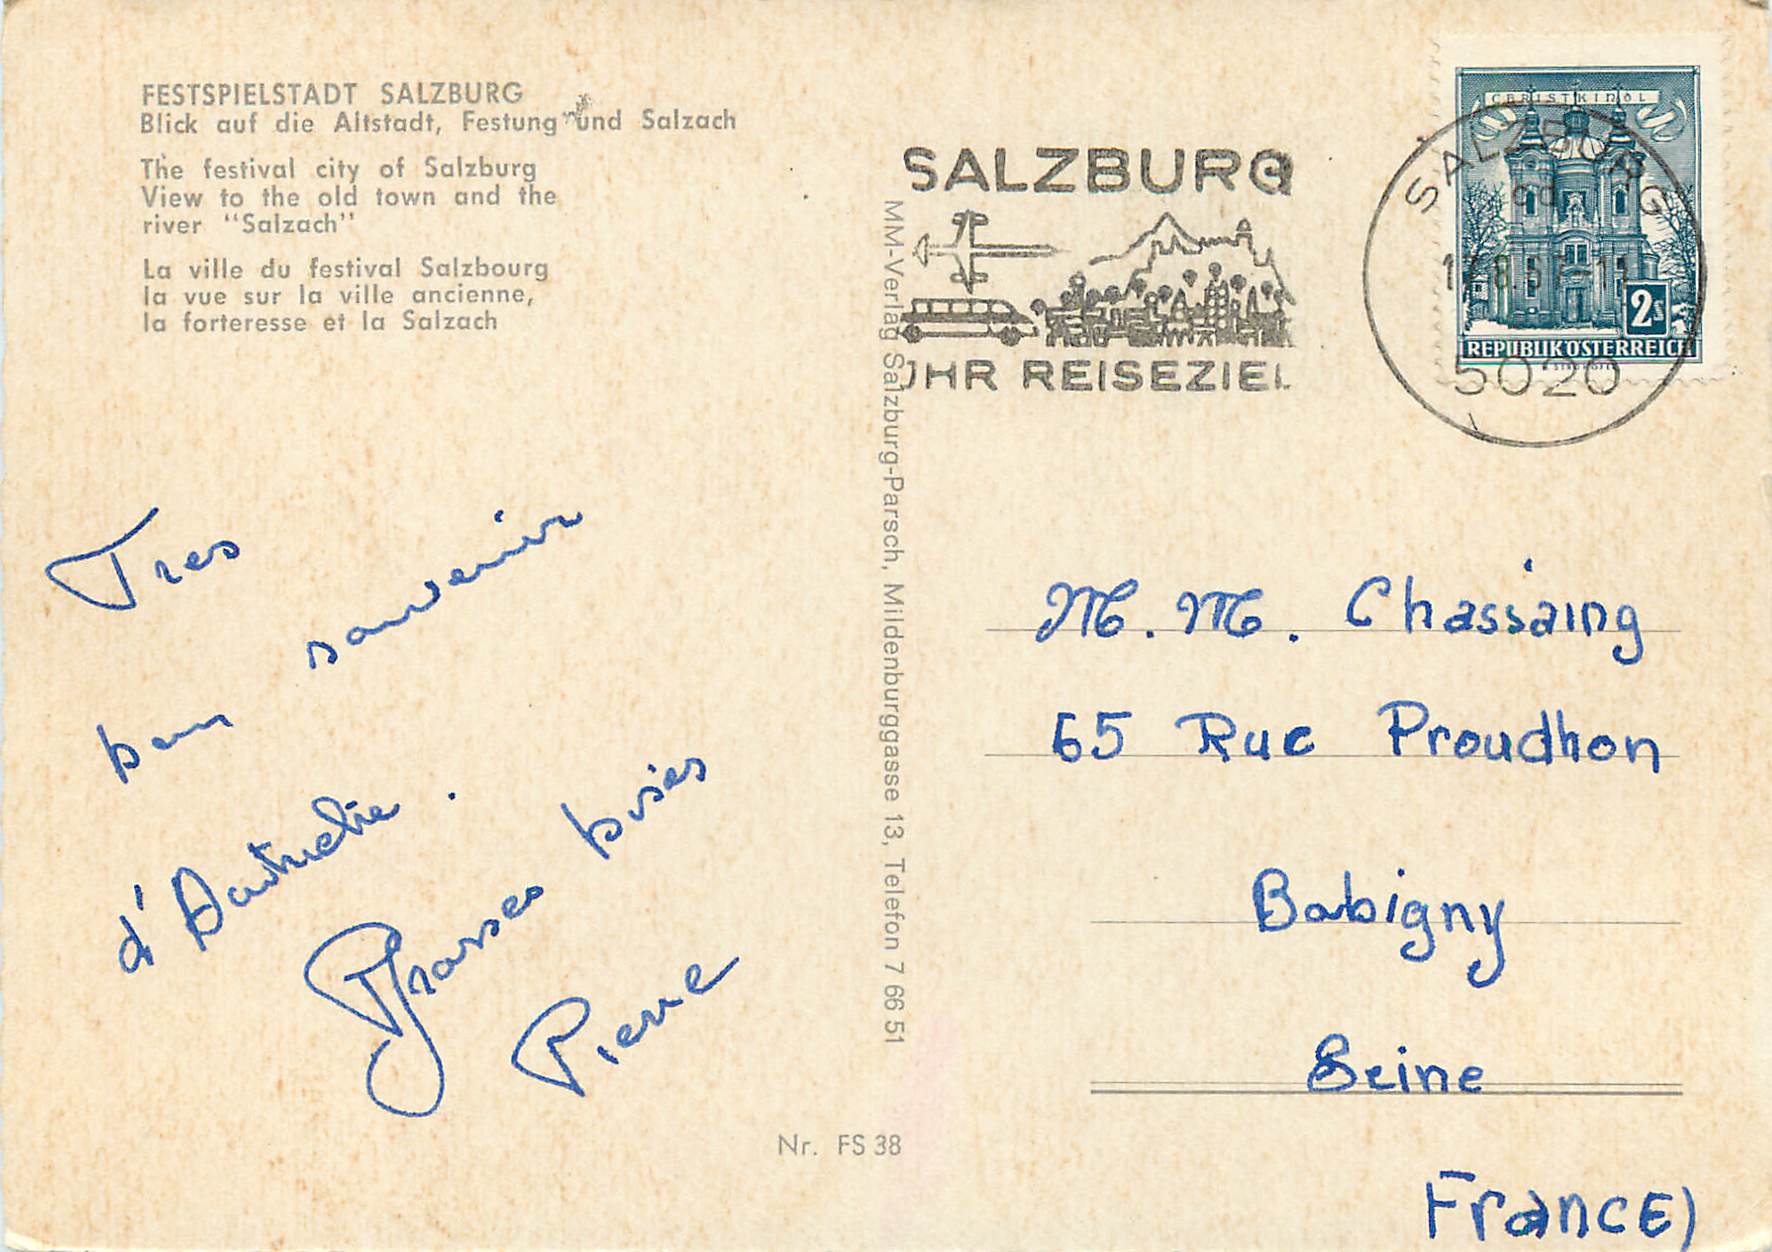 FESTSPIELSTADT SALZBURG
Blick auf die Altstadt, Festung und Salzach
The festival city of Salzburg
View to the old town and the
river "Salzach"
La ville du festival Salzbourg
la vue sur la ville ancienne,
la forteresse et la Salzach
Tres
bon souvenir
d'Autriche.
Grosses bises
Pierre
MM-Verlag Salzburg-Parsch, Mildenburggasse 13, Telefon 7 66 51
Nr. FS 38
SALZBURG
IHR REISEZIEL
SALZBURG
5020
CHRISTKINDL
2s
REPUBLIK ÖSTERREICH
M. M. Chassaing
65 Rue Proudhon
Bobigny
Seine
France)